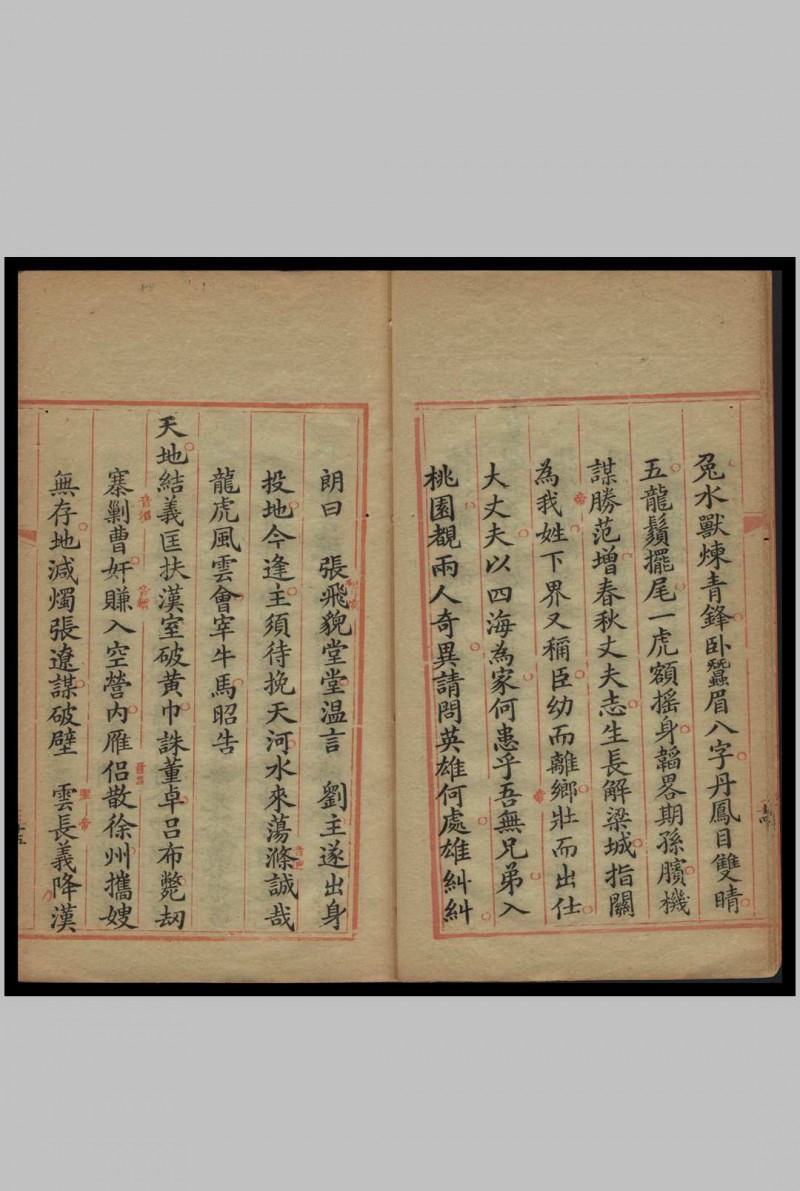 兔水獸煉青鋒臥蠶眉八字丹鳳目雙睛
五龍鬚擺尾一虎額搖身韜畧期孫臏機
謀勝范增春秋丈夫志生長解梁城指關
為我姓下界又稱臣幼而離鄉壯而出仕
大丈夫以四海為家何患乎吾無兄弟入
桃園覩兩人奇異請問英雄何處雄糾糾
朗曰　張飛貌堂堂温言　劉主遂出身
投地今逢主須待挽天河水來蕩滌誠哉
龍虎風雲會宰牛馬昭告
天地結義匡扶漢室破黃巾誅董卓呂布斃刧
寨剿曹奸賺入空營內雁侣散徐州攜嫂
無存地滅燭張遼謀破壁　雲長義降漢